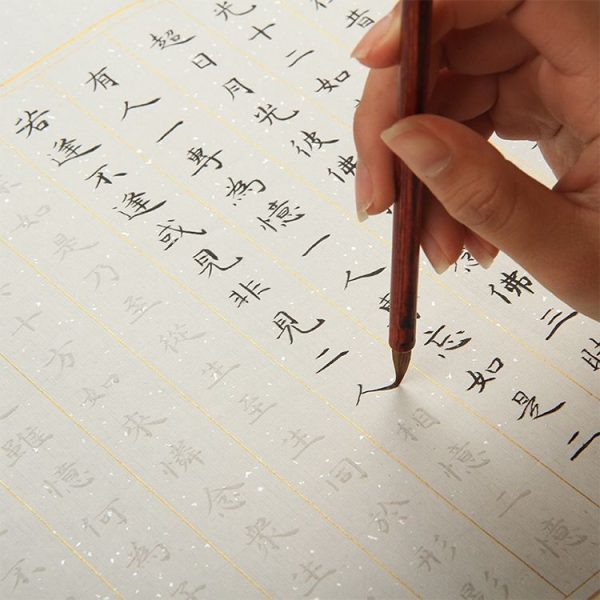 昔
光十二如
超日月光彼佛佛三
有人一專為憶一人忘如是二
若逢不逢或見非見二人相憶二憶
如是乃至從生至生同於形影
十方如來憐念眾生
雖憶何為子
不